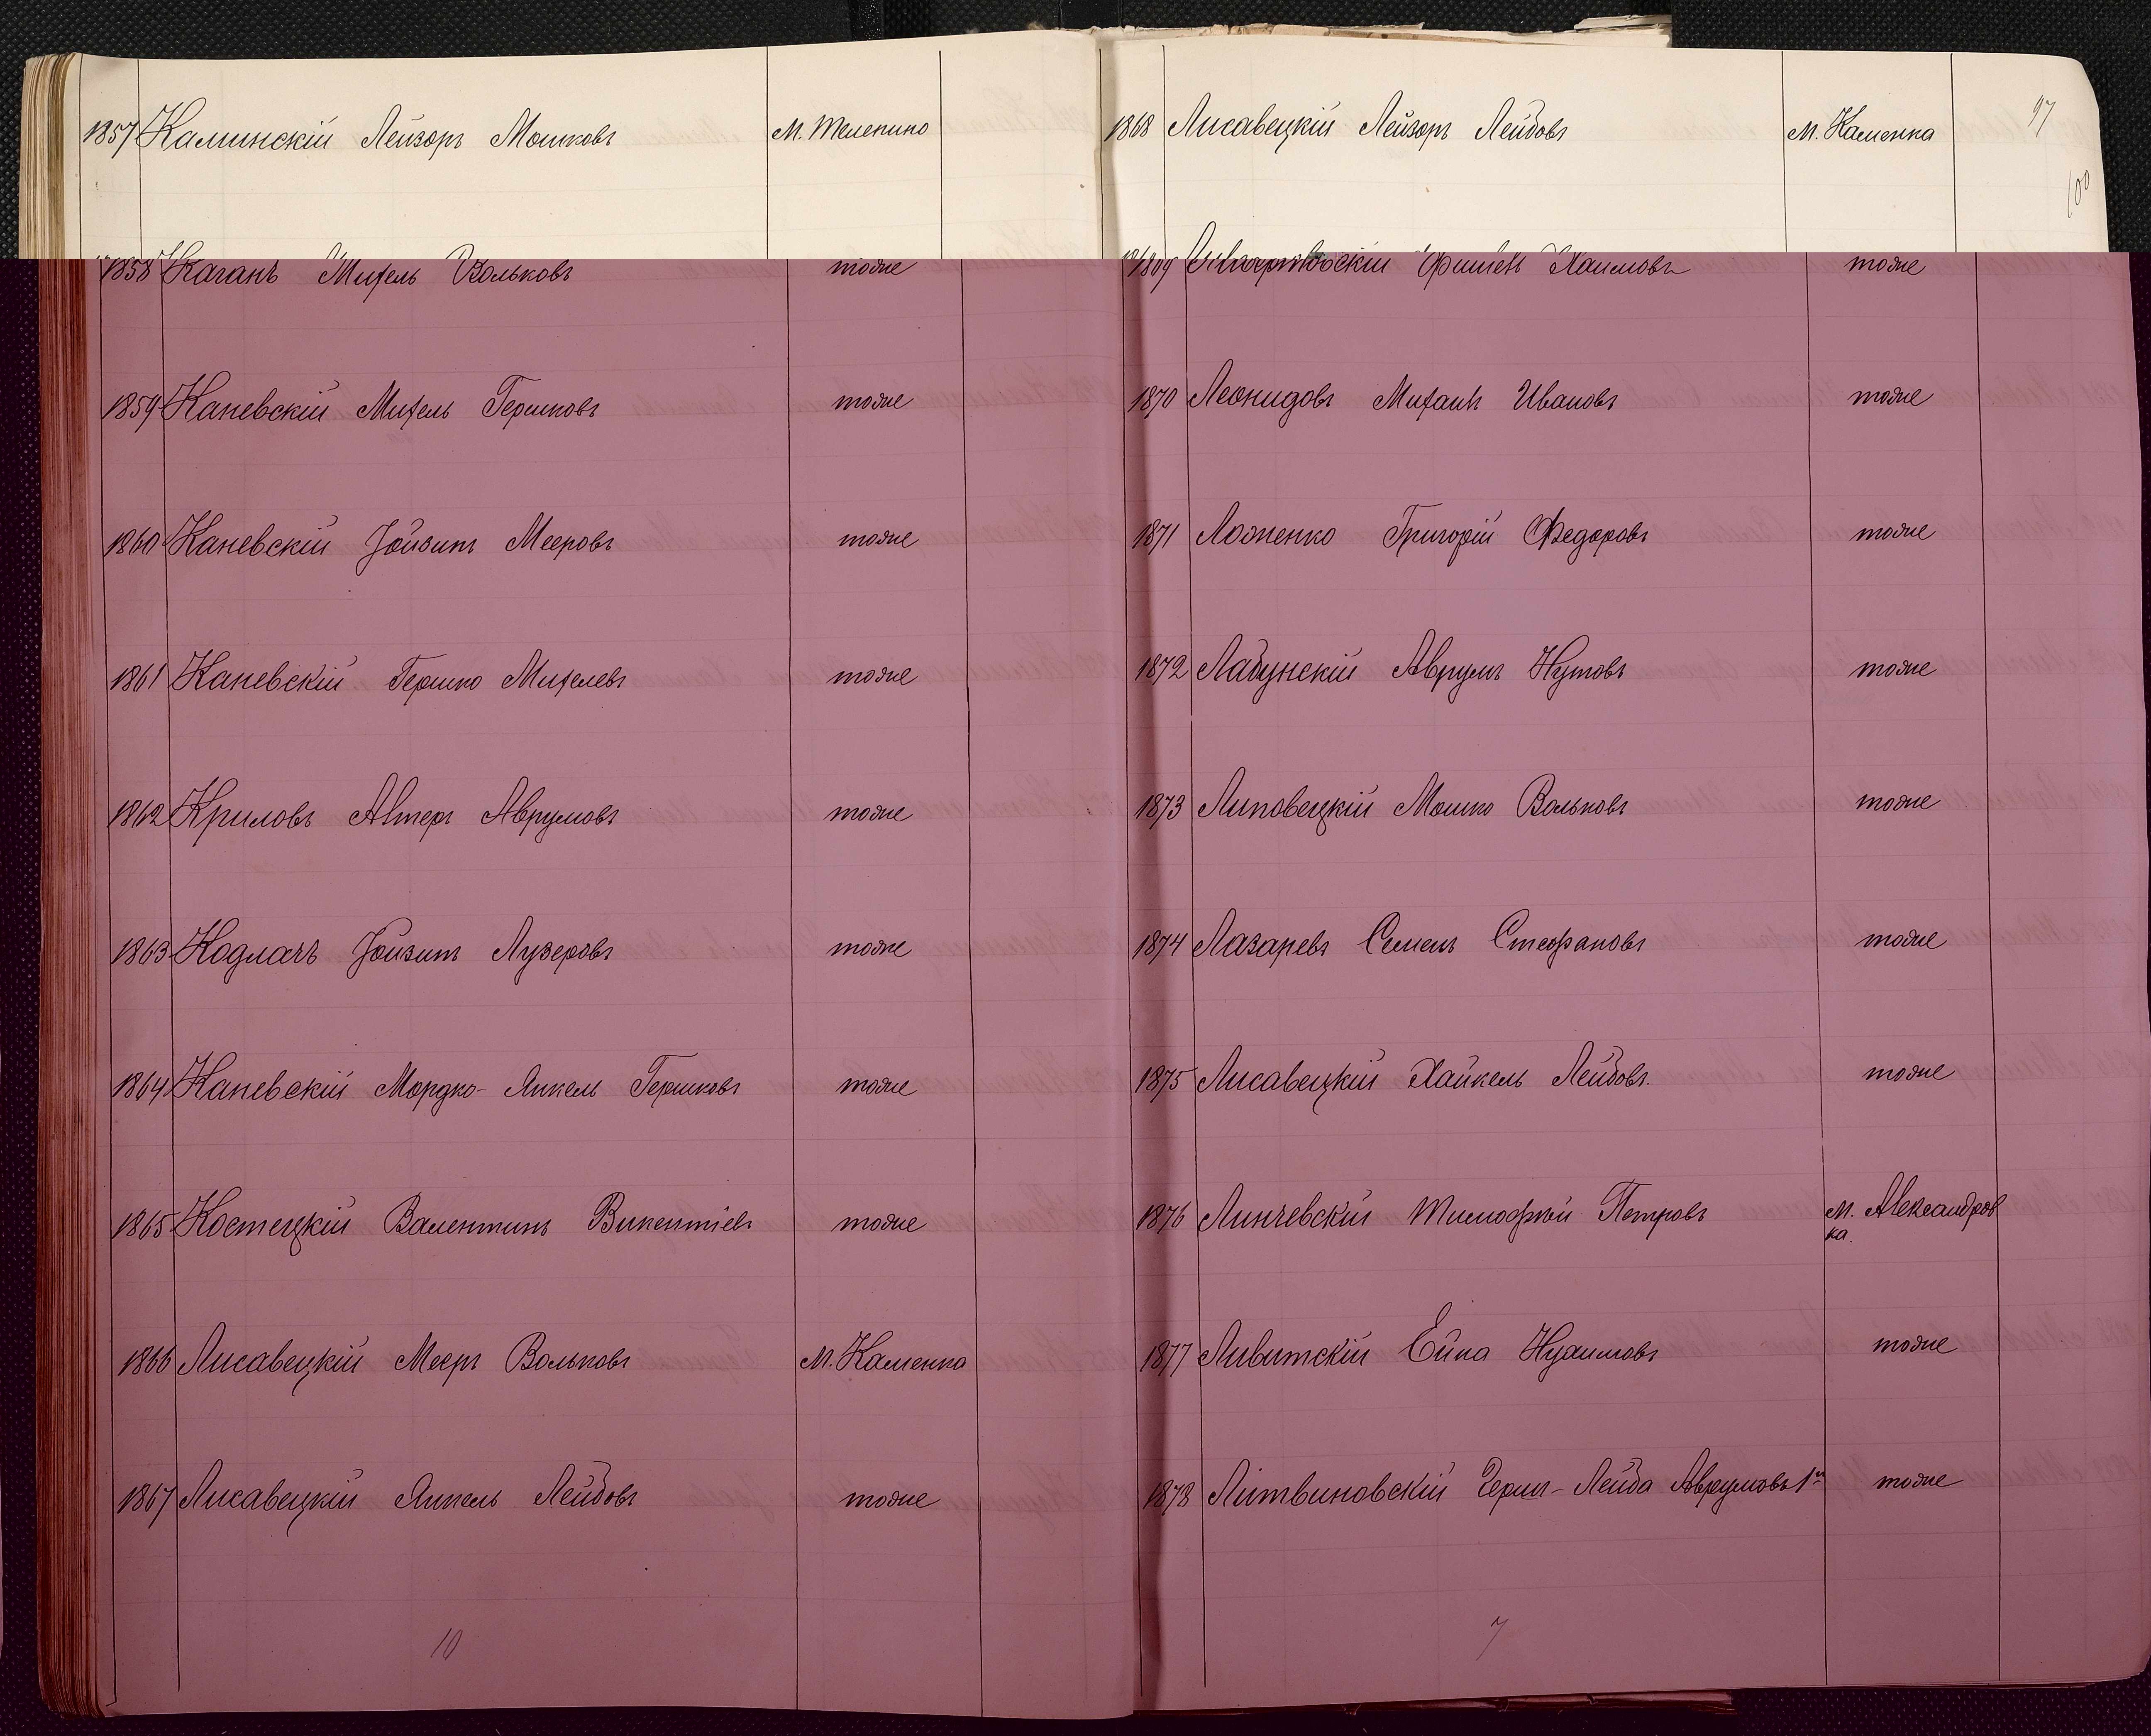 1857 Калинскій Лейзоръ Мошковъ м. Телепино
1858 Каганъ Михель Вольковъ тоже
1859 Каневскій Михель Гершковъ тоже
1860 Каневскій Іойзипъ Мееровъ тоже
1861 Каневскій Гершко Михелевъ тоже
1862 Криловъ Алтеръ Аврумовъ тоже
1863 Кодлачъ Іойзипъ Лузеровъ тоже
1864 Каневскій Мордко-Янкель Гершковъ тоже
1865 Костецкій Валентинъ Викентіевъ тоже
1866 Лисавецкій Мееръ Вольковъ м. Каменка
1867 Лисавецкій Янкель Лейбовъ тоже
10
97
100
1868 Лисавецкій Лейзоръ Лейбовъ м. Каменка
1869 Хаимовъ тоже
1870 Леонидовъ Михаилъ Ивановъ тоже
1871 Ложенко Григорій Федоровъ тоже
1872 Лабунскій Аврумъ Нутовъ тоже
1873 Липовецкій Мошко Вольковъ тоже
1874 Лазаревъ Семенъ Стефановъ тоже
1875 Лисавецкій Хайкель Лейбовъ. тоже
1876 Линчевскій Тимофей Петровъ м. Александров
ка.
1877 Ливитскій тоже
1878 Литвиновскій Герш-Лейба Аврумовъ 1й тоже
7